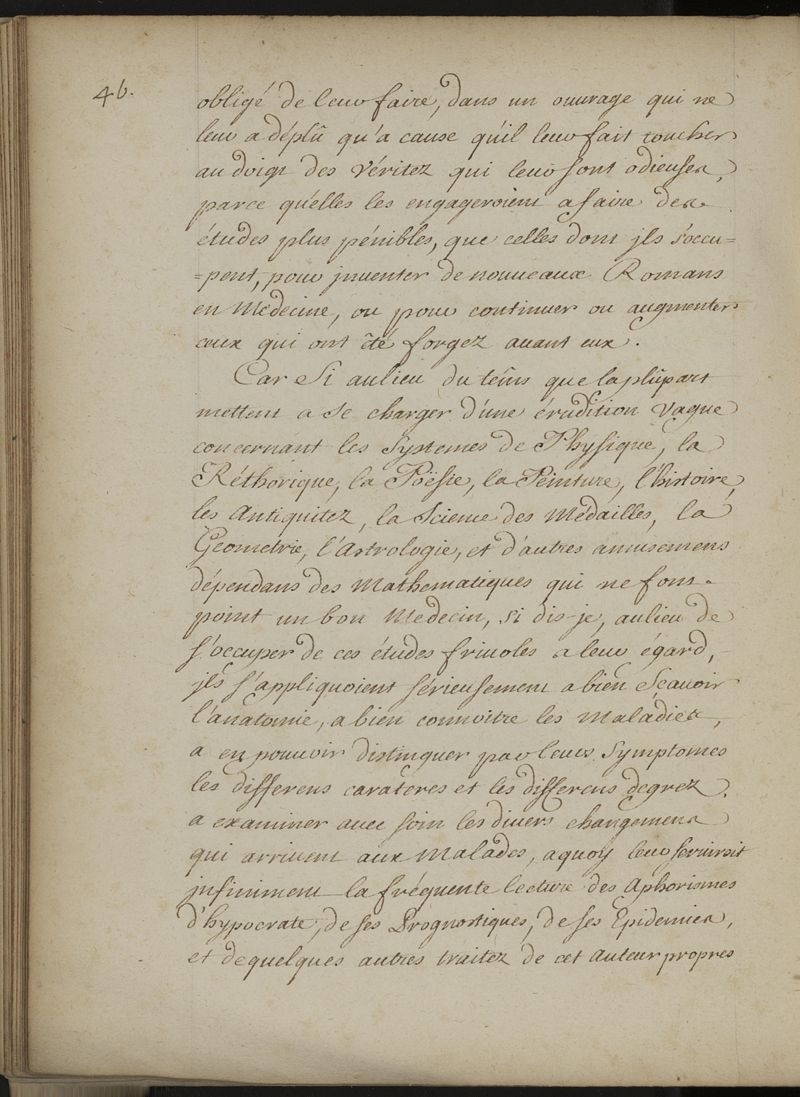 46.
obligé de leur faire, dans un ouvrage qui ne
leur a déplû qu'a cause qu'il leur fait toucher
au doigt des Véritez qui leur sont odieuses,
parce qu'elles les engageroient a faire des
études plus pénibles, que celles dont jls s'occu=
=pent, pour jnventer de nouveaux Romans
en Médecine, ou pour continuer ou augmenter
ceux qui ont êté forgez avant eux.
Car Si aulieu du têms que la plûpart
mettent a se charger d'une érudition vague
concernant les Systemes de Physique, la
Réthorique, la Poësie, la Peinture, l'histoire,
les Antiquitez, la Science des Médailles, la
Geometrie, l'Astrologie, et d'autres amusemens
dépendans des Mathematiques qui ne font
point un bon Medecin, si dis-je, aulieu de
s'occuper de ces études frivoles a leur égard,
jls s'appliquoient sérieusement a bien Scavoir
l'anatomie, a bien connoitre les Maladies,
a en pouvoir distinguer par leurs Symptomes
les differens caratères et les differens degrez,
a examiner avec soin les divers changemens
qui arrivent aux Malades, a quoy leur serviroit
jnfiniment la fréquente lecture des Aphorismes
d'hypocrate, de ses Prognostiques, de ses Epidemies,
et de quelques autres traitez de cet Auteur propres